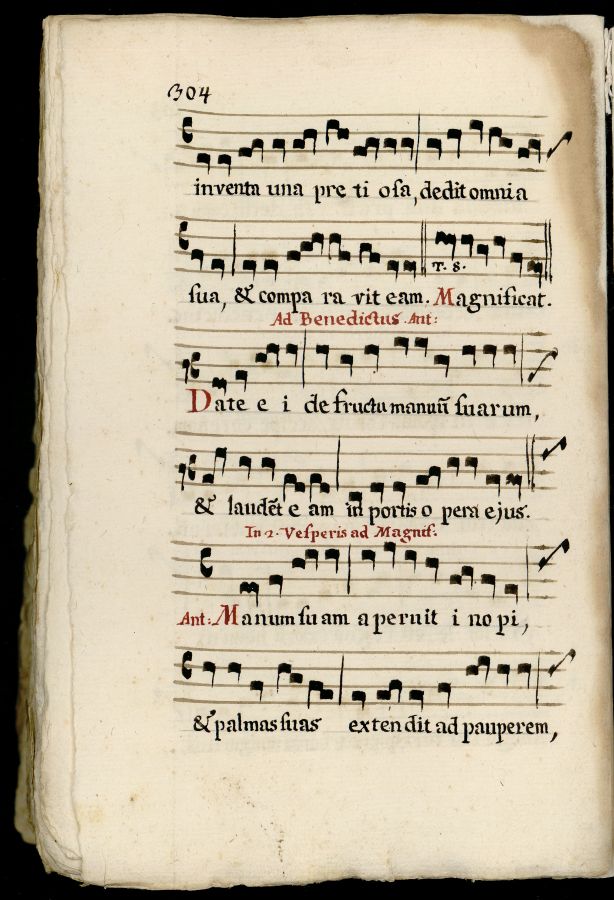 304
inventa una pre ti osa, dedit omnia
T. 8.
sua, & compa ra vit eam. Magnificat.
Ad Benedictus. Ant:
Date e i de fructu manuū suarum,
& laudēt e am in portis o pera ejus.
In 2. Vesperis ad Magnif:
Ant: Manum su am aperuit i no pi,
& palmas suas extendit ad pauperem,